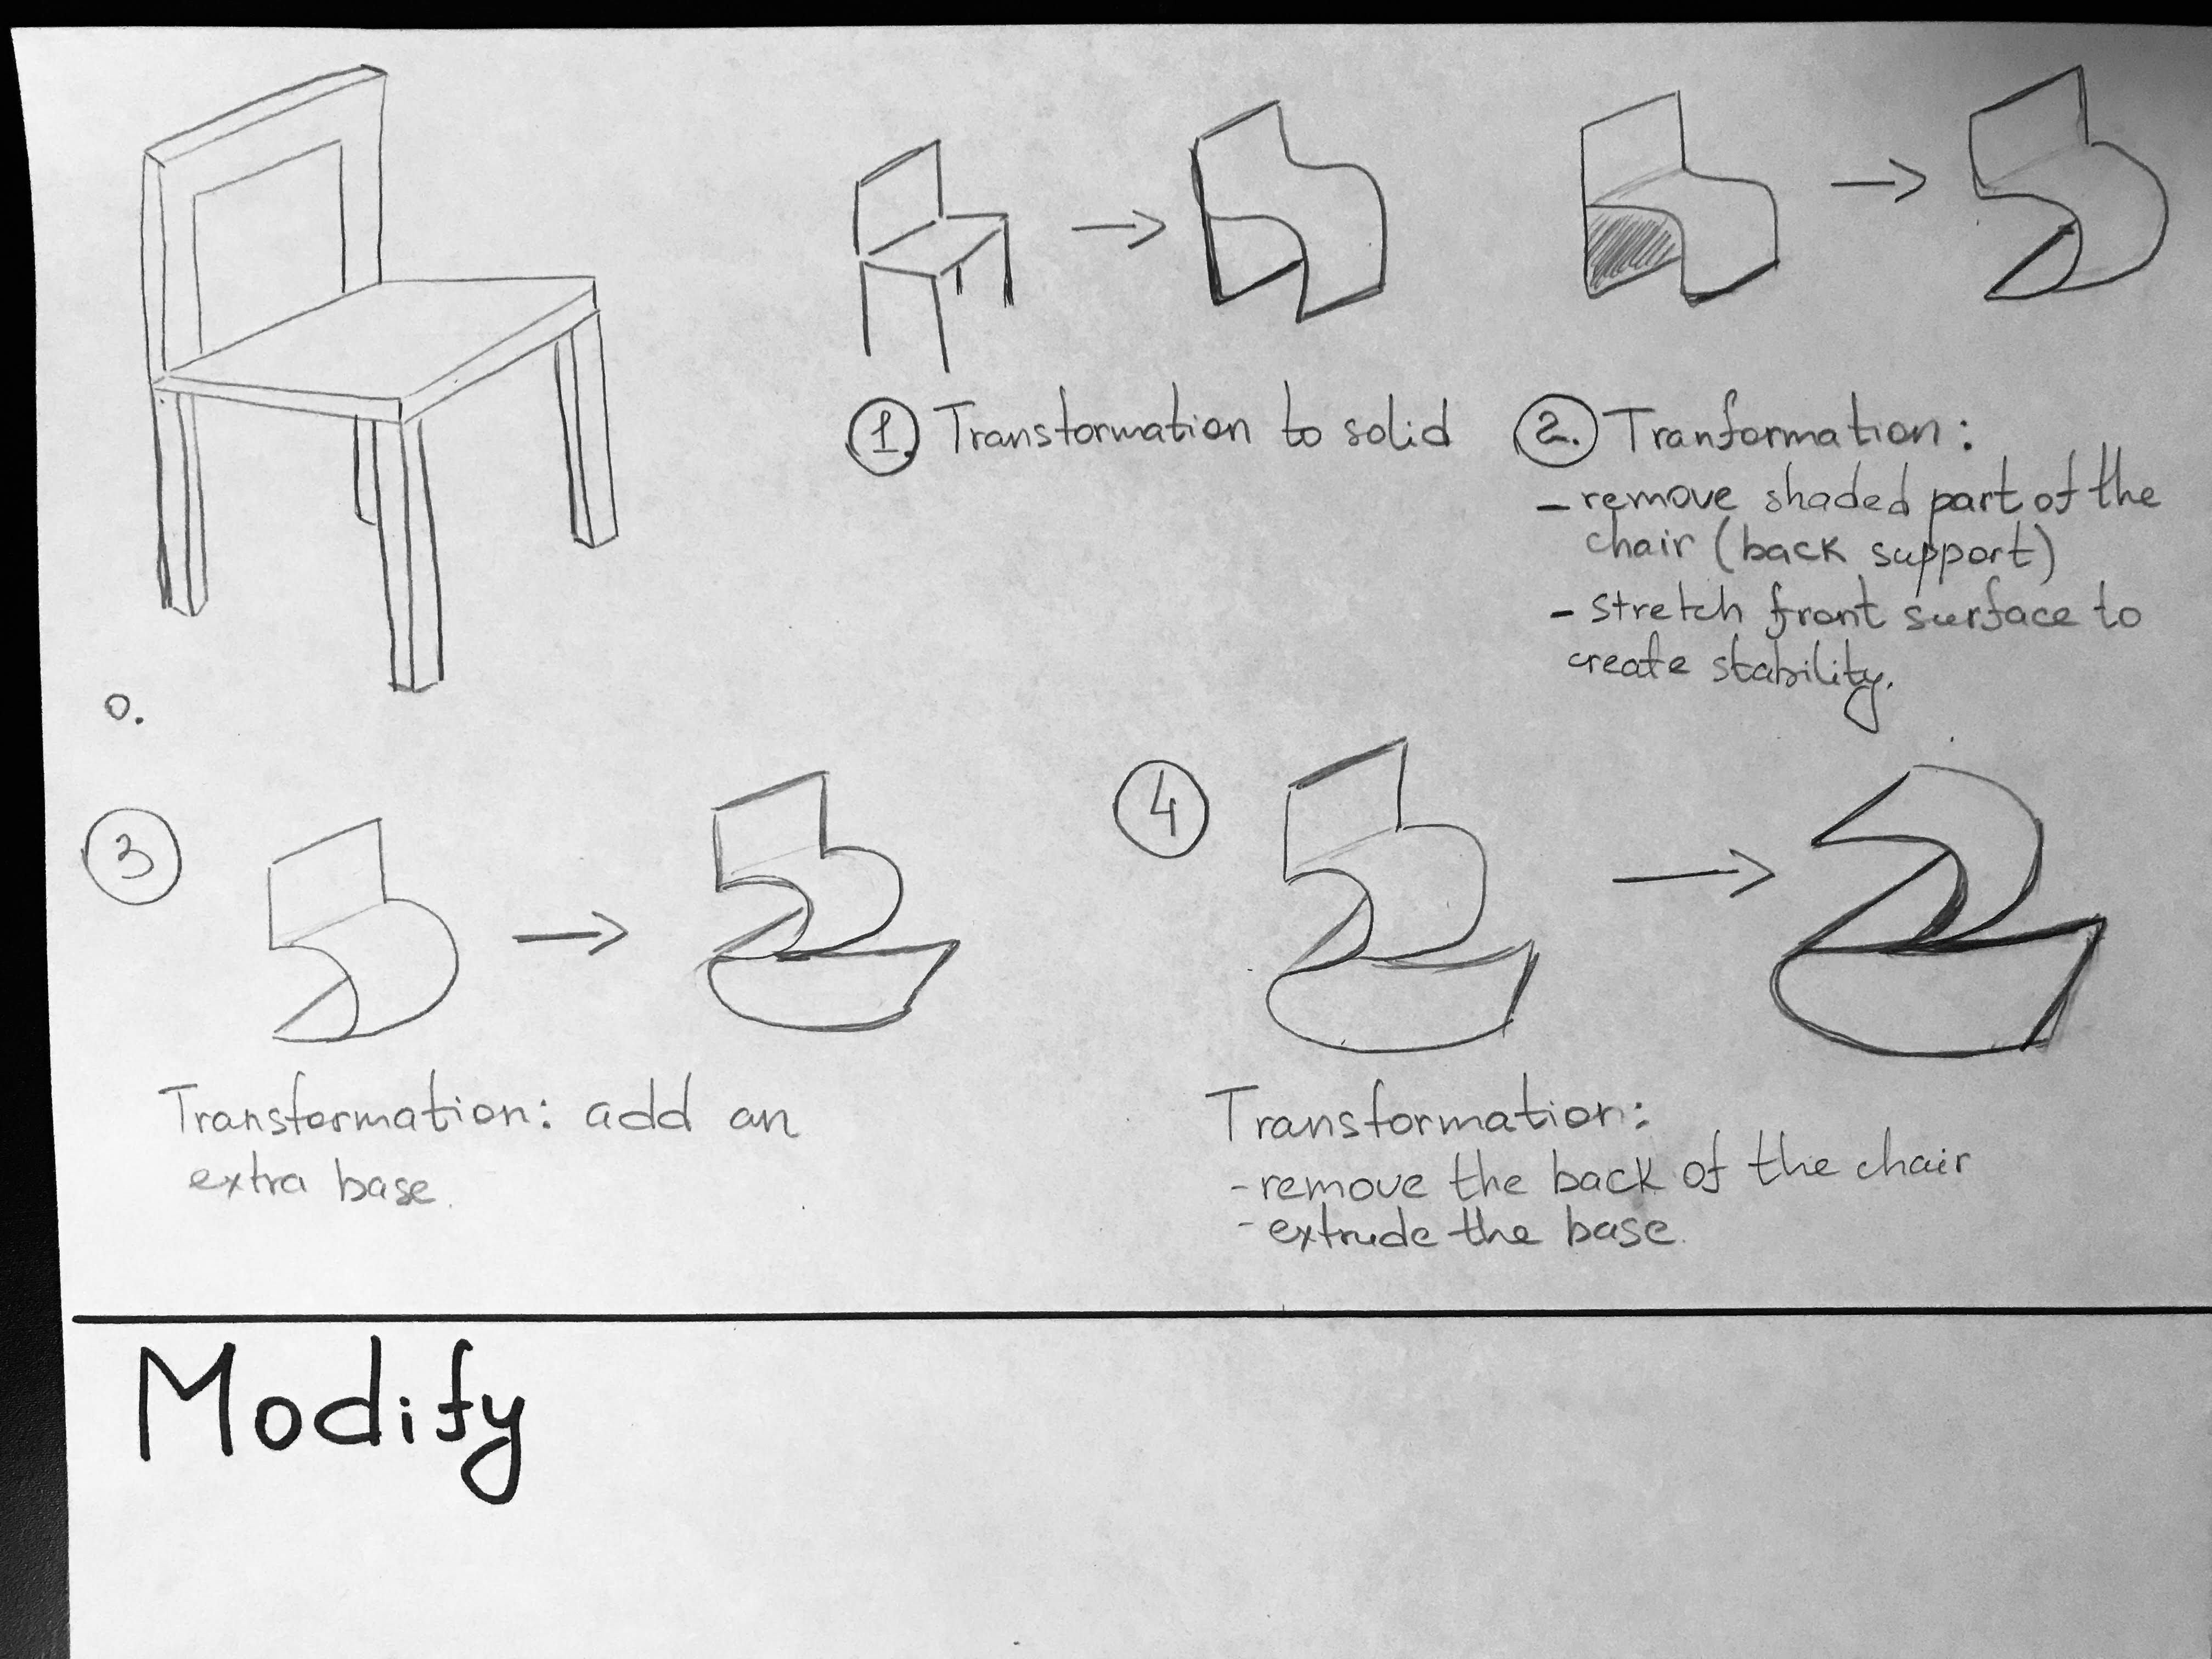 0.
1. Transformation to solid
2. Tranformation:
- remove shaded part of the
chair (back support)
- stretch front surface to
create stability.
3
Transformation: add an
extra base.
4
Transformation:
- remove the back of the chair
- extrude the base.
Modify